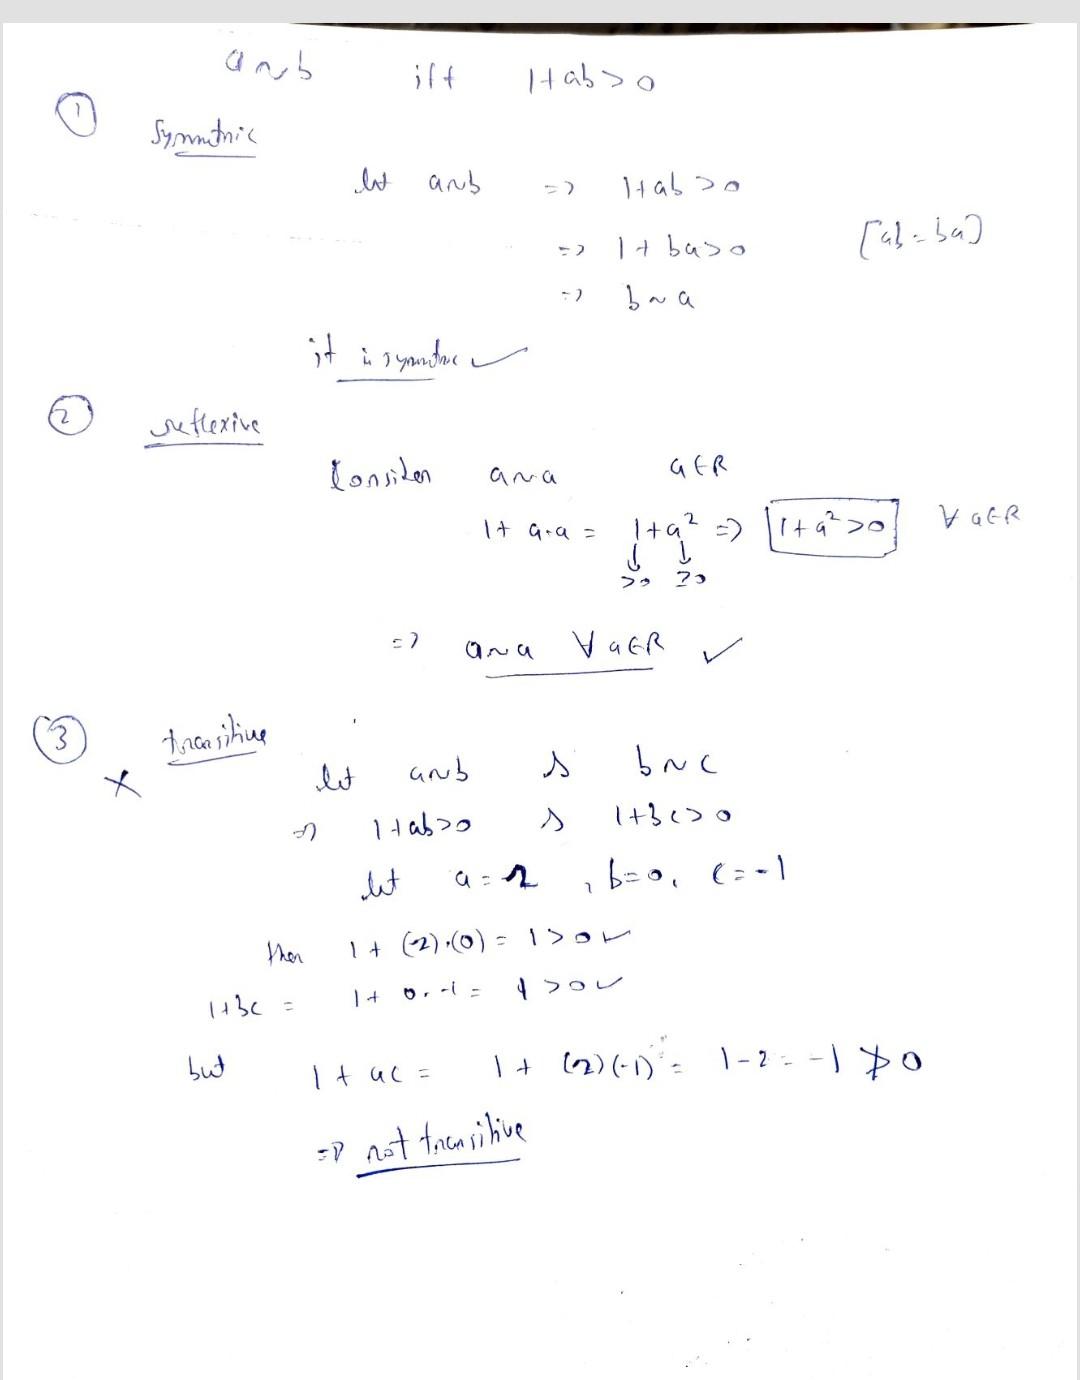 a ~ b iff 1+ab>0
① Symmetric
let a~b => 1+ab>0
=> 1+ba>0 [ab=ba]
=> b~a
it is symmetric ✓
② reflexive
Consider a~a a∈R
1+a·a = 1+a² => 1+a²>0 ∀ a∈R
↓ ↓
>0 ≥0
=> a~a ∀ a∈R ✓
③ transitive
×
let a~b & b~c
=> 1+ab>0 & 1+bc>0
let a=2, b=0, c=-1
then 1+(2)·(0)=1>0✓
1+bc = 1+0·-1=1>0✓
but 1+ac= 1+(2)(-1)= 1-2=-1≯0
=> not transitive